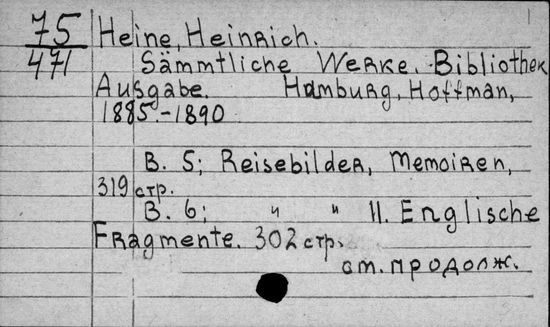 75
471
Heine, Heinrich.
Sämmtliche Werke. Bibliothek
Ausgabe. Hamburg, Hoffman,
1885.-1890
B. 5; Reisebilder, Memoiren,
319 стр.
B. 6; " " II. Englische
Fragmente. 302 стр.
см. продолж.